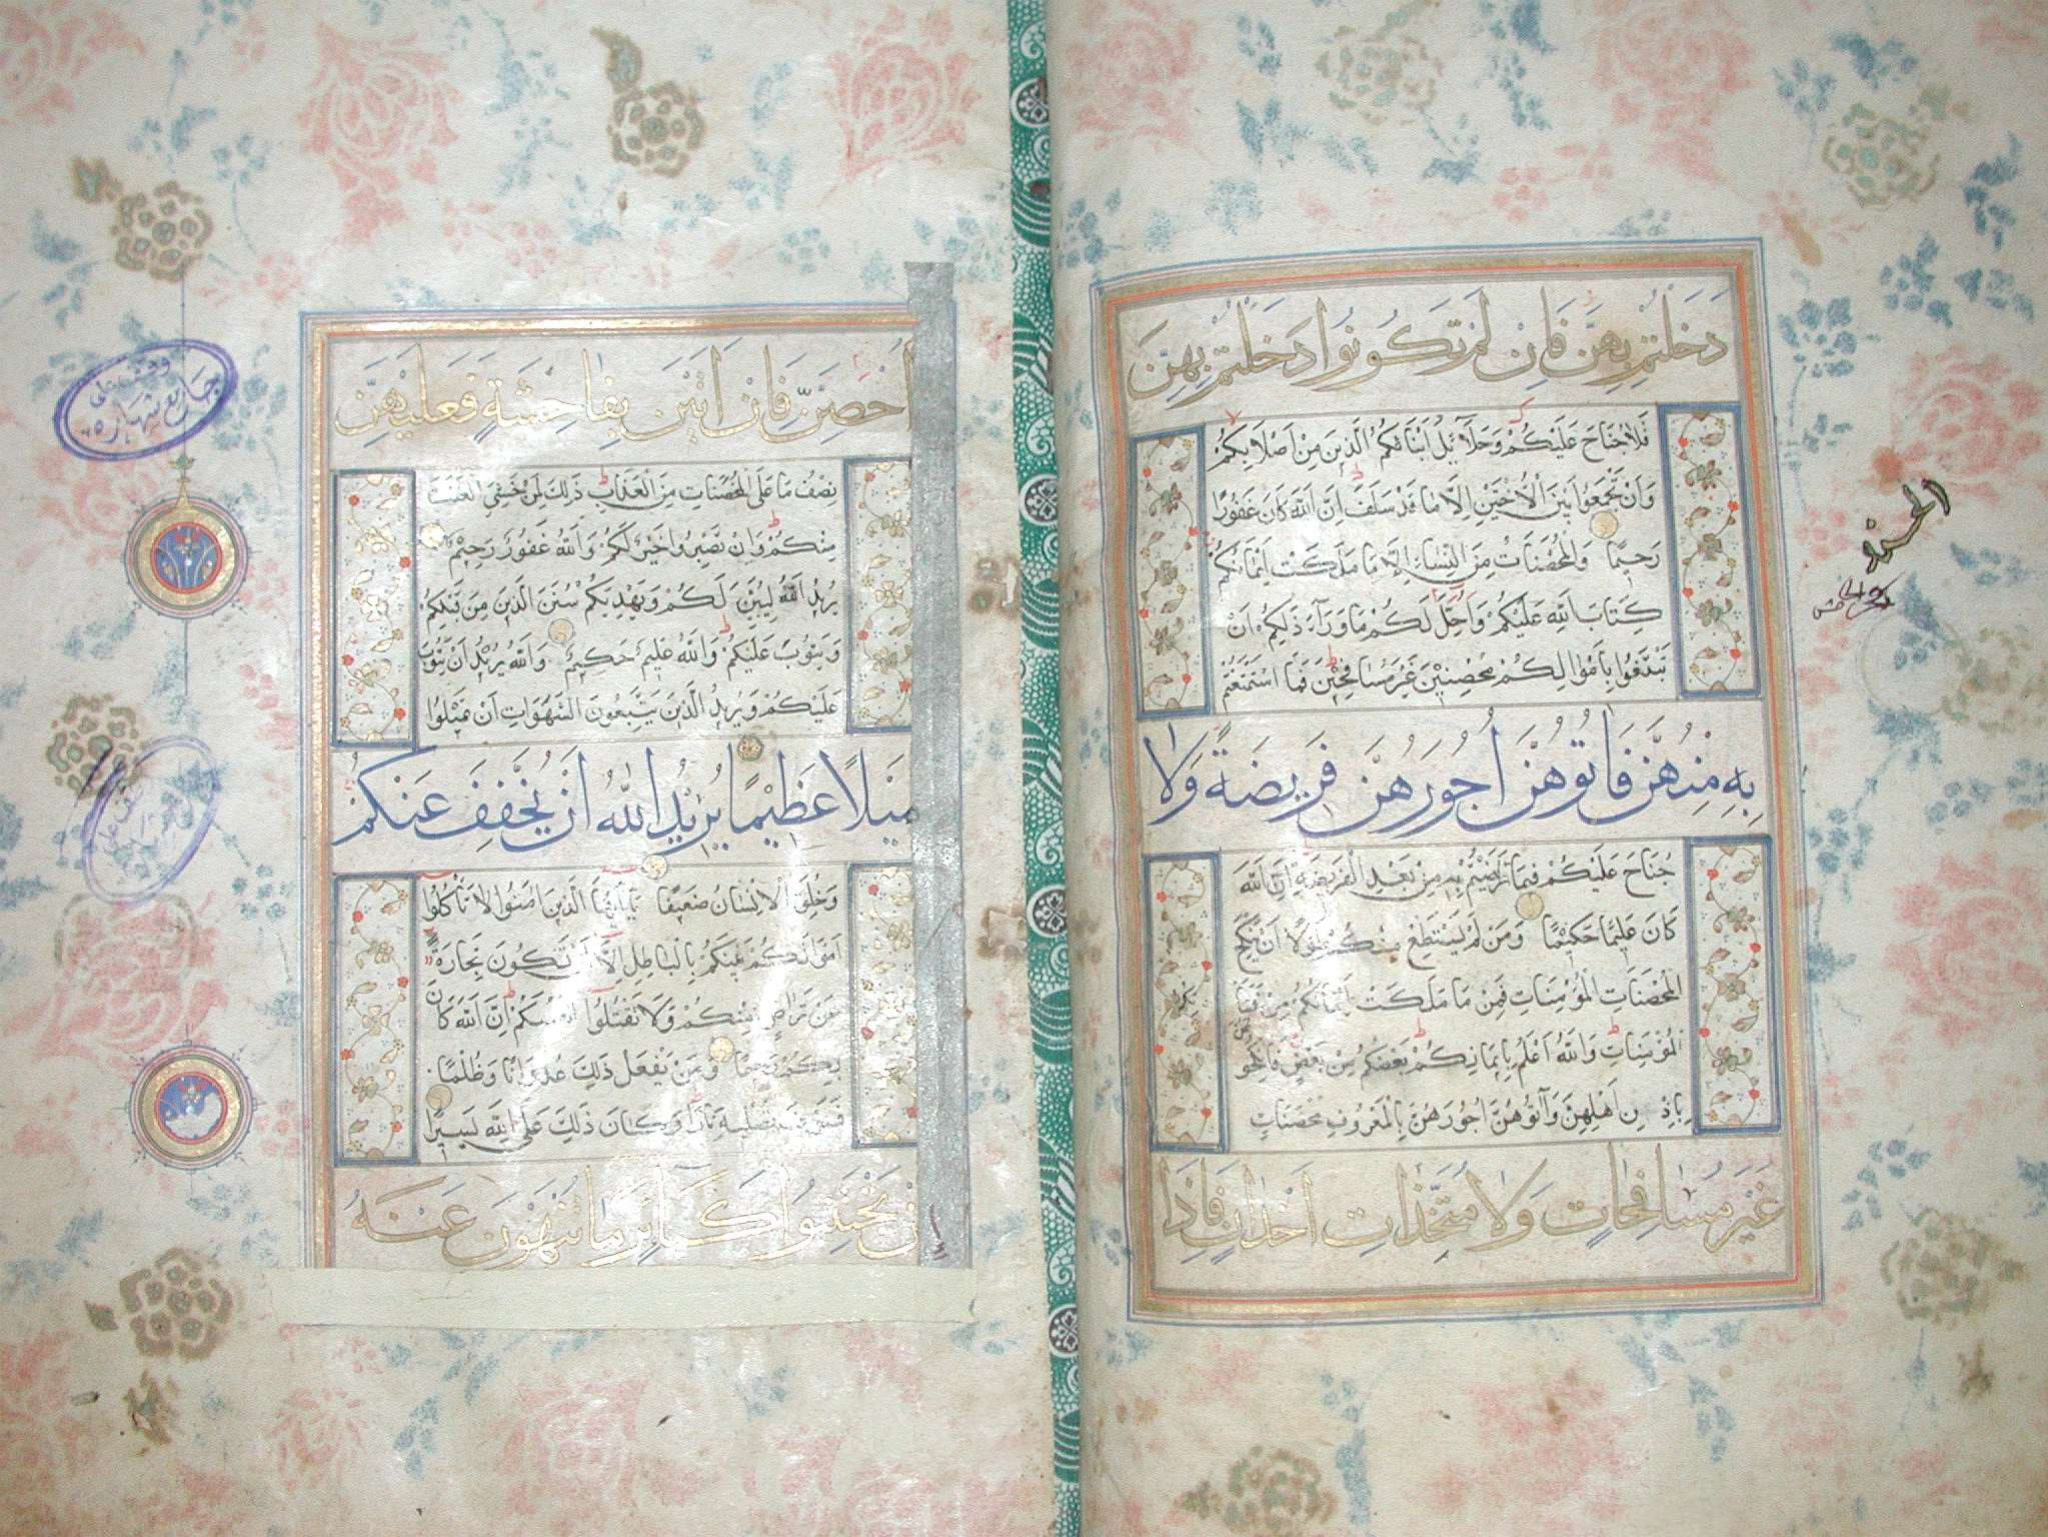 دَخَلْتُمْ بِهِنَّ فَاِنْ لَمْ تَكُونُوا دَخَلْتُمْ بِهِنَّ
فَلَا جُنَاحَ عَلَيْكُمْ وَحَلَآئِلُ اَبْنَائِكُمُ الَّذِينَ مِنْ اَصْلَابِكُمْ
وَاَنْ تَجْمَعُوا بَيْنَ الْاُخْتَيْنِ اِلَّا مَا قَدْ سَلَفَ اِنَّ اللّٰهَ كَانَ غَفُورًا
رَحِيمًا وَالْمُحْصَنَاتُ مِنَ النِّسَاءِ اِلَّا مَا مَلَكَتْ اَيْمَانُكُمْ
كِتَابَ اللّٰهِ عَلَيْكُمْ وَاُحِلَّ لَكُمْ مَا وَرَآءَ ذٰلِكُمْ اَنْ
تَبْتَغُوا بِاَمْوَالِكُمْ مُحْصِنِينَ غَيْرَ مُسَافِحِينَ فَمَا اسْتَمْتَعْتُمْ
بِهِ مِنْهُنَّ فَاٰتُوهُنَّ اُجُورَهُنَّ فَرِيضَةً وَلَا
جُنَاحَ عَلَيْكُمْ فِيمَا تَرَاضَيْتُمْ بِهِ مِنْ بَعْدِ الْفَرِيضَةِ اِنَّ اللّٰهَ
كَانَ عَلِيمًا حَكِيمًا وَمَنْ لَمْ يَسْتَطِعْ مِنْكُمْ طَوْلًا اَنْ يَنْكِحَ
الْمُحْصَنَاتِ الْمُؤْمِنَاتِ فَمِنْ مَا مَلَكَتْ اَيْمَانُكُمْ مِنْ فَتَيَاتِكُمُ
الْمُؤْمِنَاتِ وَاللّٰهُ اَعْلَمُ بِاِيمَانِكُمْ بَعْضُكُمْ مِنْ بَعْضٍ فَانْكِحُوهُنَّ
بِاِذْنِ اَهْلِهِنَّ وَآتُوهُنَّ اُجُورَهُنَّ بِالْمَعْرُوفِ مُحْصَنَاتٍ
غَيْرَ مُسَافِحَاتٍ وَلَا مُتَّخِذَاتِ اَخْدَانٍ فَاِذَا
اُحْصِنَّ فَاِنْ اَتَيْنَ بِفَاحِشَةٍ فَعَلَيْهِنَّ
نِصْفُ مَا عَلَى الْمُحْصَنَاتِ مِنَ الْعَذَابِ ذٰلِكَ لِمَنْ خَشِيَ الْعَنَتَ
مِنْكُمْ وَاَنْ تَصْبِرُوا خَيْرٌ لَكُمْ وَاللّٰهُ غَفُورٌ رَحِيمٌ
يُرِيدُ اللّٰهُ لِيُبَيِّنَ لَكُمْ وَيَهْدِيَكُمْ سُنَنَ الَّذِينَ مِنْ قَبْلِكُمْ
وَيَتُوبَ عَلَيْكُمْ وَاللّٰهُ عَلِيمٌ حَكِيمٌ وَاللّٰهُ يُرِيدُ اَنْ يَتُوبَ
عَلَيْكُمْ وَيُرِيدُ الَّذِينَ يَتَّبِعُونَ الشَّهَوَاتِ اَنْ تَمِيلُوا
مَيْلًا عَظِيمًا يُرِيدُ اللّٰهُ اَنْ يُخَفِّفَ عَنْكُمْ
وَخُلِقَ الْاِنْسَانُ ضَعِيفًا يَا اَيُّهَا الَّذِينَ اٰمَنُوا لَا تَاْكُلُوا
اَمْوَالَكُمْ بَيْنَكُمْ بِالْبَاطِلِ اِلَّا اَنْ تَكُونَ تِجَارَةً
عَنْ تَرَاضٍ مِنْكُمْ وَلَا تَقْتُلُوا اَنْفُسَكُمْ اِنَّ اللّٰهَ كَانَ
بِكُمْ رَحِيمًا وَمَنْ يَفْعَلْ ذٰلِكَ عُدْوَانًا وَظُلْمًا
فَسَوْفَ نُصْلِيهِ نَارًا وَكَانَ ذٰلِكَ عَلَى اللّٰهِ يَسِيرًا
اِنْ تَجْتَنِبُوا كَبَآئِرَ مَا تُنْهَوْنَ عَنْهُ
وقف على
جامع شهاره